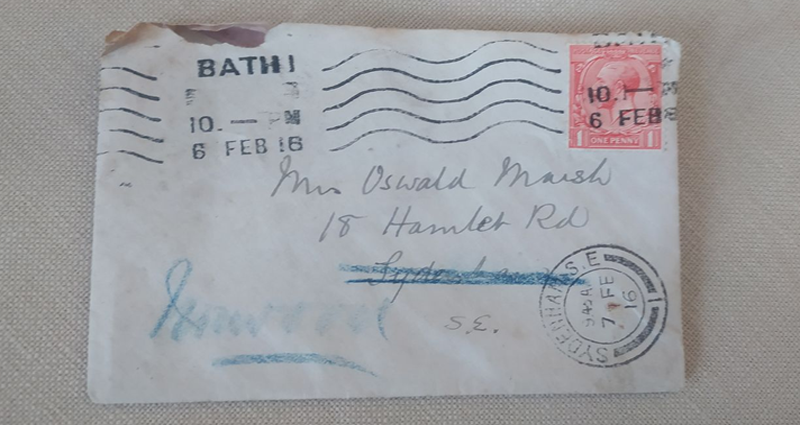 BATH
10. — PM
6 FEB 16
10. — PM
6 FEB 16
ONE PENNY
Mrs Oswald Marsh
18 Hamlet Rd
Sydenham
S.E.
Norwood
SYDENHAM S.E
9.45 A
7 FE
16
1